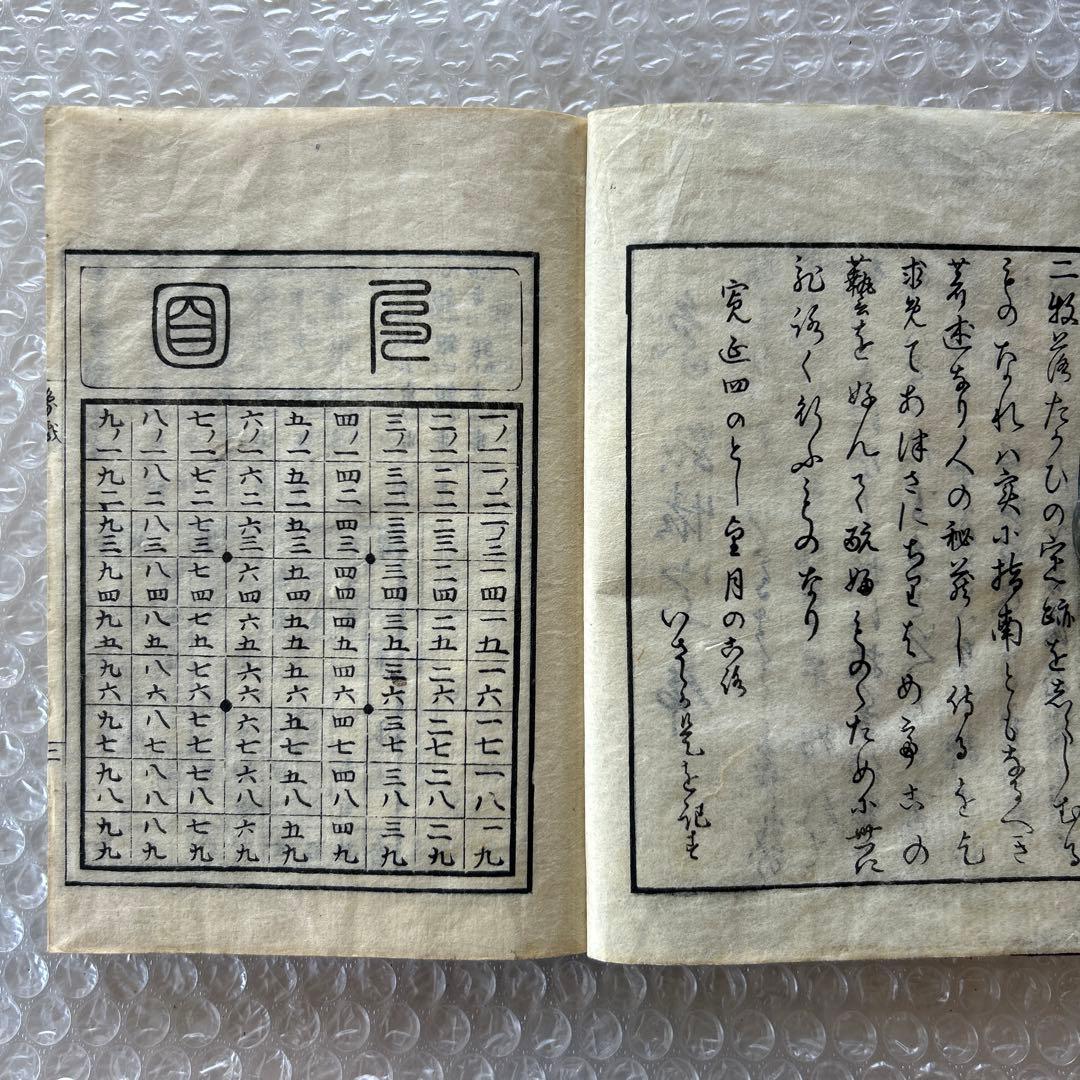 二枚落たゝかひの定跡を志らしむる
ものなれハ実小指南ともなるへき
著述なり人の秘蔵し侍るを乞
求免てあ津さにちりはめ弖この
藝を好んて翫ふものゝため小世に
飛路く行ふものなり
寛延四のとし皐月の古路
いさゝか是を記す
面
一ノ一 一ノ二 一ノ三 一四 一五 一六 一七 一八 一九
二ノ一 二二 二三 二四 二五 二六 二七 二八 二九
三ノ一 三二 三三 三四 三五 三六 三七 三八 三九
四ノ一 四二 四三 四四 四五 四六 四七 四八 四九
五ノ一 五二 五三 五四 五五 五六 五七 五八 五九
六ノ一 六二 六三 六四 六五 六六 六七 六八 六九
七ノ一 七二 七三 七四 七五 七六 七七 七八 七九
八ノ一 八二 八三 八四 八五 八六 八七 八八 八九
九ノ一 九二 九三 九四 九五 九六 九七 九八 九九
象戯
二